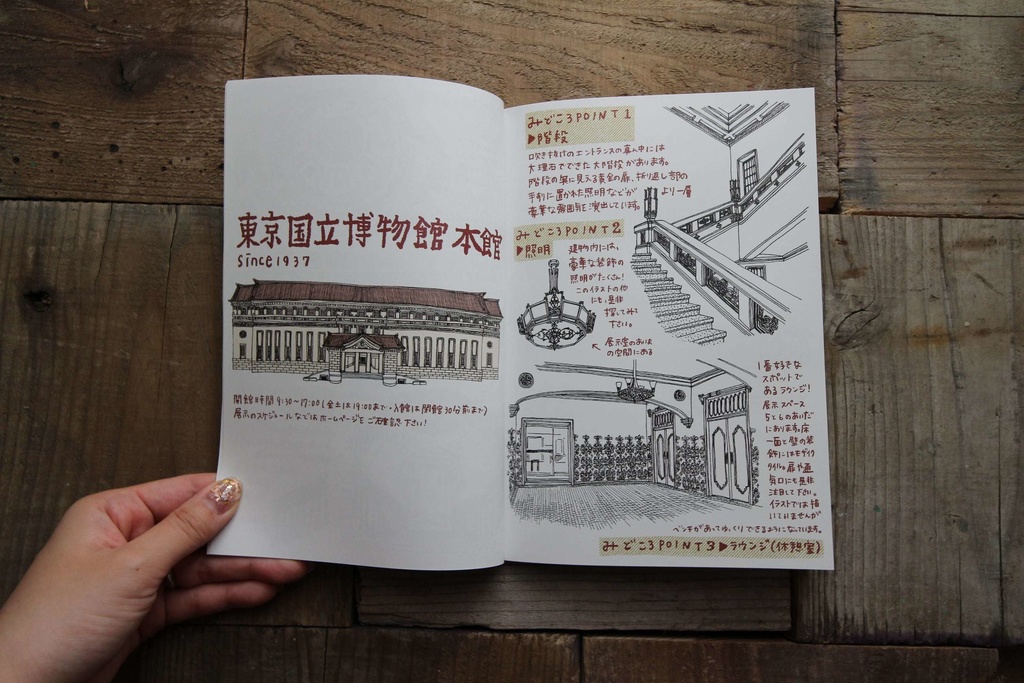 東京国立博物館 本館
since1937
開館時間9:30〜17:00(金土は19:00まで・入館は閉館30分前まで)
展示のスケジュールなどはホームページをご確認下さい!
みどころPOINT1
▶階段
吹き抜けのエントランスの真ん中には
大理石でできた大階段があります。
階段の奥に見える黄金の扉、折り返し部の
手刷に置かれた照明などが より一層
豪華な雰囲気を演出しています。
みどころPOINT2
▶照明
建物内には、
豪華な装飾の
照明がたくさん!
このイラストの他
にも、是非
探してみて
下さい。
↖ 展示室のあいだ
の空間にある
1番好きな
スポットで
あるラウンジ!
展示スペース
5と6のあいだ
にあります。床
一面と壁の装
飾にはモザイク
タイル。扉や通
気口にも是非
注目して下さい。
イラストでは描
いていませんが
ベンチがあってゆっくりできるようになっています。
みどころPOINT3▶ラウンジ(休憩室)